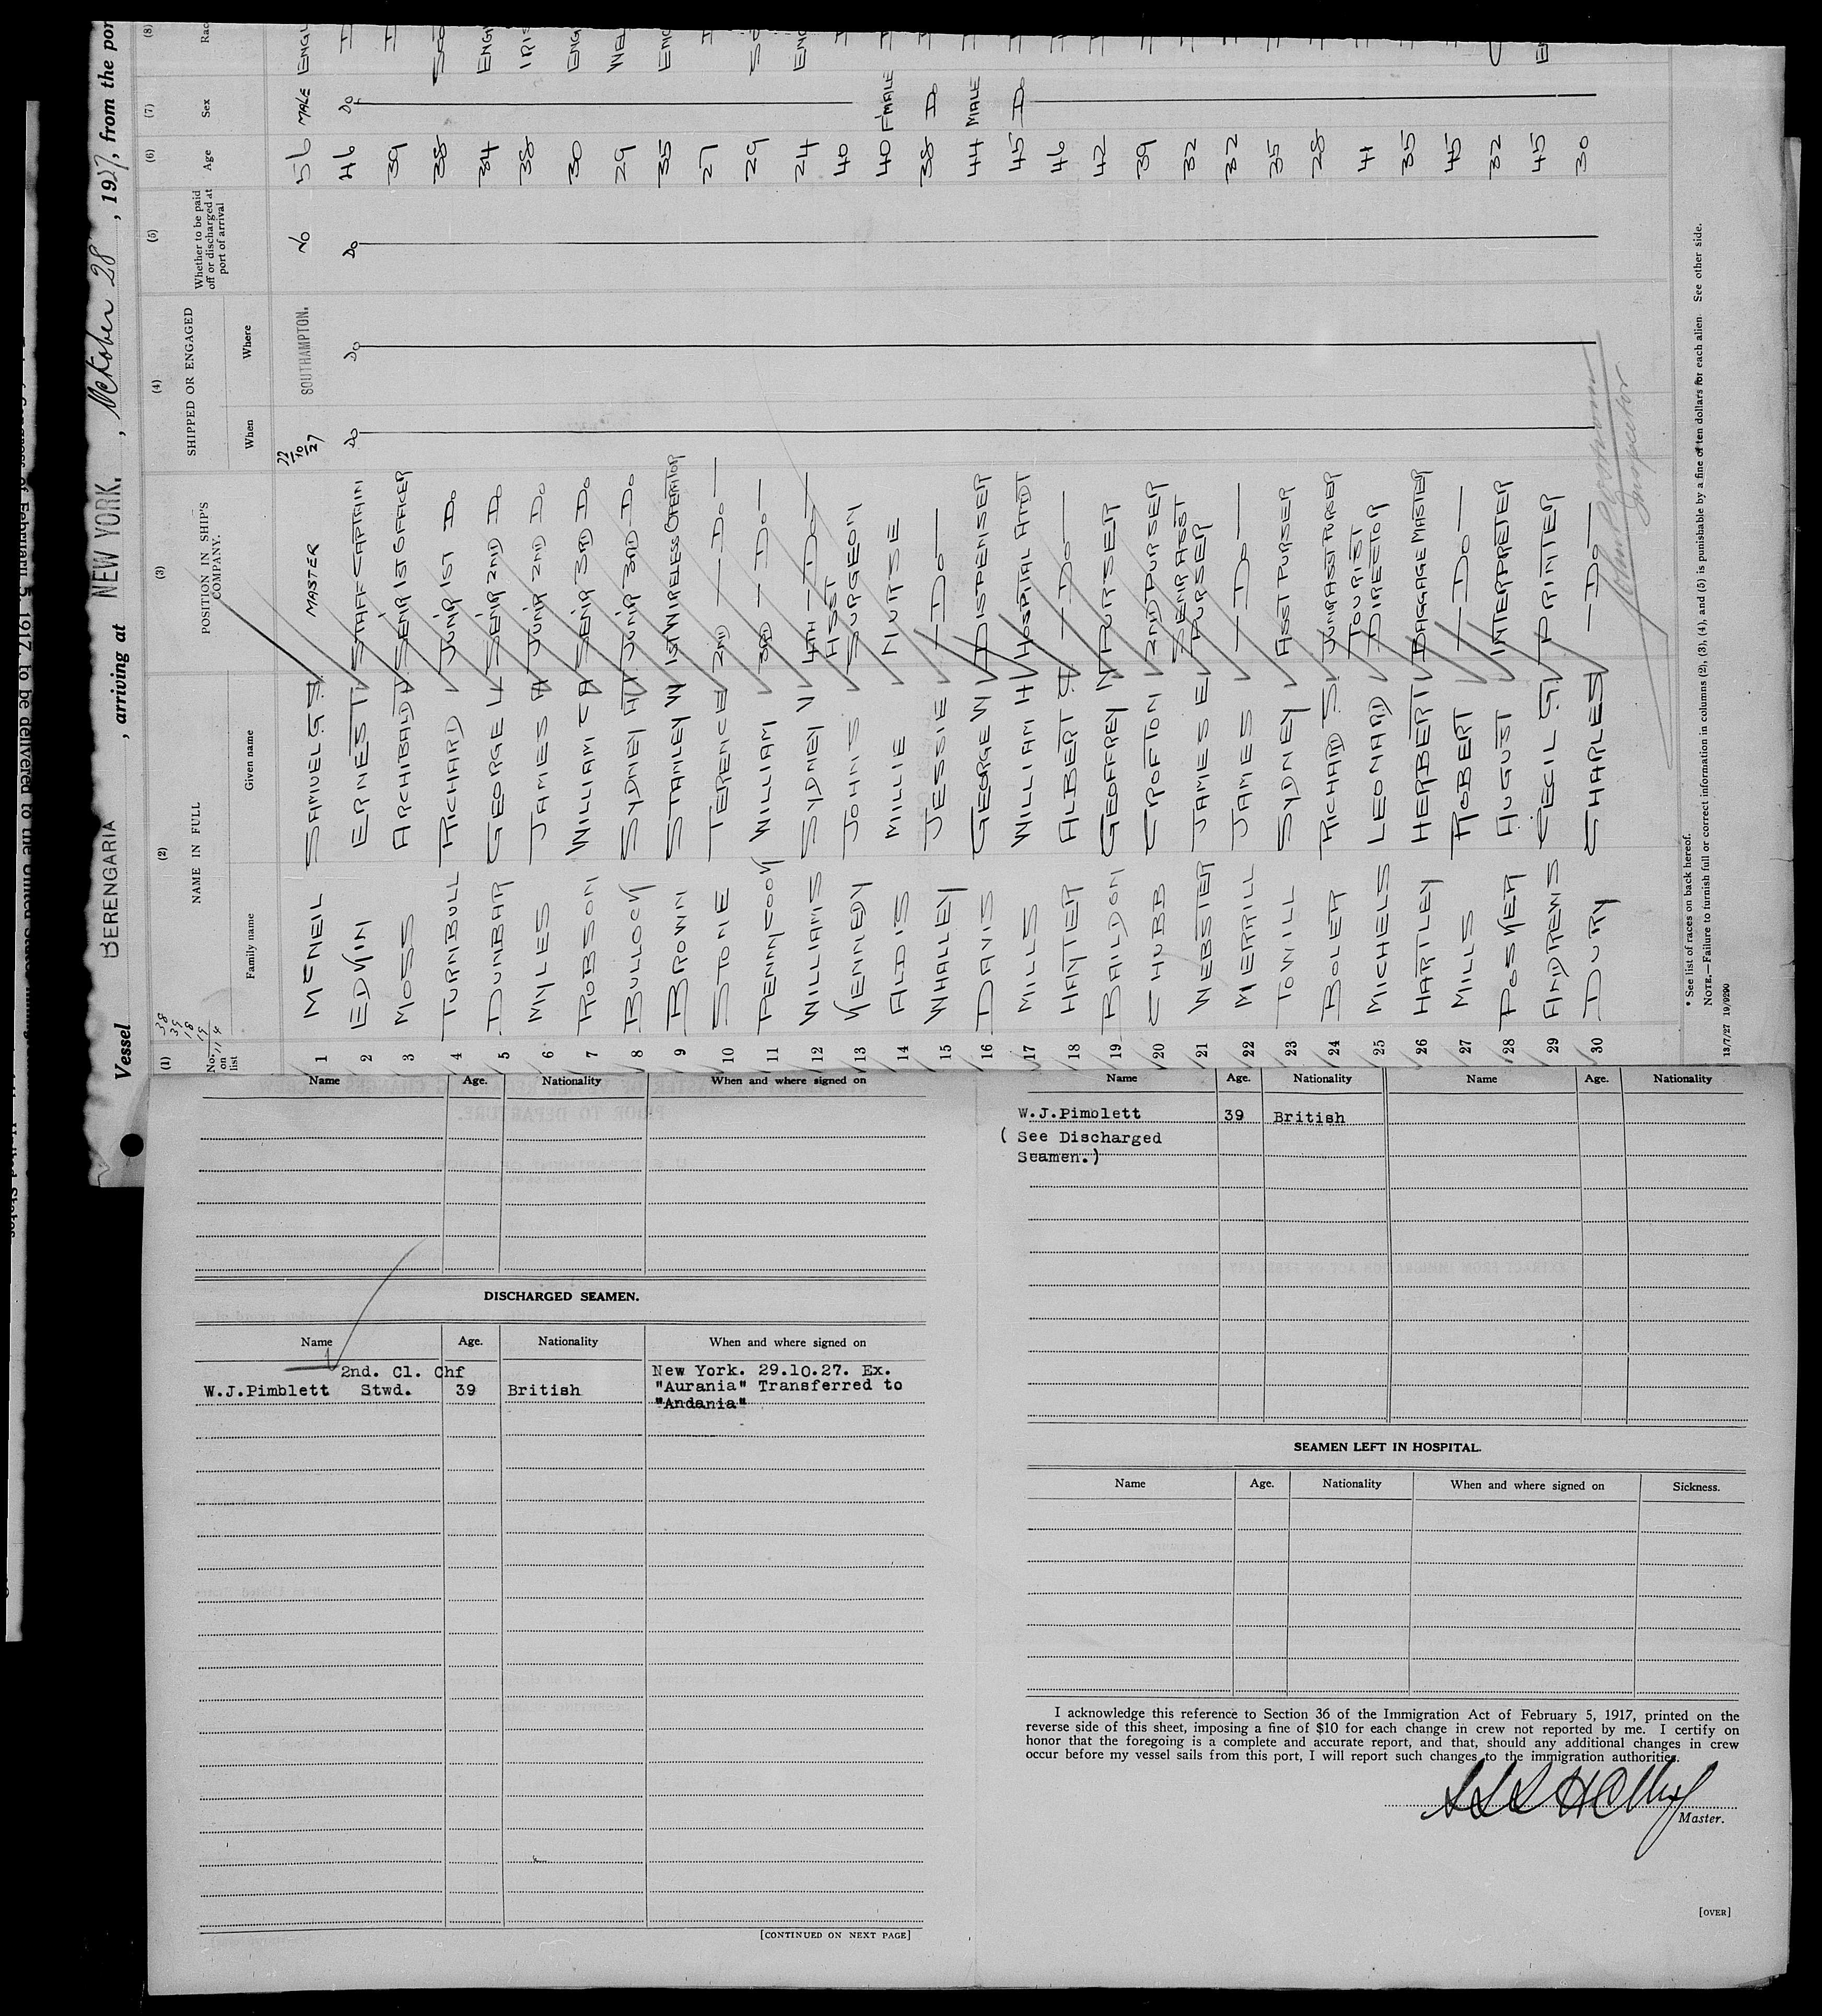 Vessel BERENGARIA, arriving at NEW YORK., October 28, 1927, from the por
(1) (2) (3) (4) (5) (6) (7) (8)
No. on list NAME IN FULL POSITION IN SHIP'S COMPANY. SHIPPED OR ENGAGED Whether to be paid off or discharged at port of arrival Age Sex Rac
Family name Given name When Where
38
39
18
19
114
1 McNEIL SAMUEL G S MASTER 22/10/27 SOUTHAMPTON. No 56 MALE ENGL
2 EDWIN ERNEST STAFF CAPTAIN Do Do Do 46 Do
3 MOSS ARCHIBALD SENR 1ST OFFICER 39
4 TURNBULL RICHARD JUNR 1ST Do 38
5 DUNBAR GEORGE SENR 2ND Do 34 ENG
6 MYLES JAMES A JUNR 2ND Do 38 IRIS
7 ROBSON WILLIAM C A SENR 3RD Do 30 ENG
8 BULLOCK SYDNEY JUNR 3RD Do 29 WEL
9 BROWN STANLEY W 1ST WIRELESS OPERATOR 35 ENG
10 STONE TERENCE 2ND — Do — 27
11 PENNYCOOK WILLIAM 3RD — Do — 29 Sc
12 WILLIAMS SYDNEY 4TH — Do — 24 ENG
13 KENNEDY JOHN S ASST SURGEON 40
14 ALDIS MILLIE NURSE 40 F'MALE
15 WHALLEY JESSIE — Do — 38 Do
16 DAVIS GEORGE W DISPENSER 44 MALE
17 MILLS WILLIAM H HOSPITAL ATTDT 45 Do
18 HAYTER ALBERT — Do — 46
19 BAILDON GEOFFREY PURSER 42
20 CHUBB CROFTON 2ND PURSER 39
21 WEBSTER JAMES E SENR ASST PURSER 32
22 MERRILL JAMES — Do — 32
23 TOWILL SYDNEY ASST PURSER 35
24 BOLER RICHARD S JUNR ASST PURSER 28
25 MICHELS LEONARD TOURIST DIRECTOR 41
26 HARTLEY HERBERT BAGGAGE MASTER 35
27 MILLS ROBERT — Do — 45
28 POSKER AUGUST INTERPRETER 32
29 ANDREWS CECIL G PRINTER 45 E
30 DURY CHARLES — Do — 30
Inspector
* See list of races on back hereof.
NOTE.—Failure to turnish full or correct information in columns (2), (3), (4), and (5) is punishable by a fine of ten dollars for each alien. See other side.
13/7/27 19/9290
Name Age. Nationality When and where signed on
DISCHARGED SEAMEN.
Name Age. Nationality When and where signed on
2nd. Cl. Chf New York. 29.10.27. Ex.
W.J.Pimblett Stwd. 39 British "Aurania" Transferred to
"Andania"
[CONTINUED ON NEXT PAGE]
Name Age. Nationality Name Age. Nationality
W.J.Pimblett 39 British
( See Discharged
Seamen.)
SEAMEN LEFT IN HOSPITAL.
Name Age. Nationality When and where signed on Sickness.
I acknowledge this reference to Section 36 of the Immigration Act of February 5, 1917, printed on the
reverse side of this sheet, imposing a fine of $10 for each change in crew not reported by me. I certify on
honor that the foregoing is a complete and accurate report, and that, should any additional changes in crew
occur before my vessel sails from this port, I will report such changes to the immigration authorities.
Master.
[OVER]